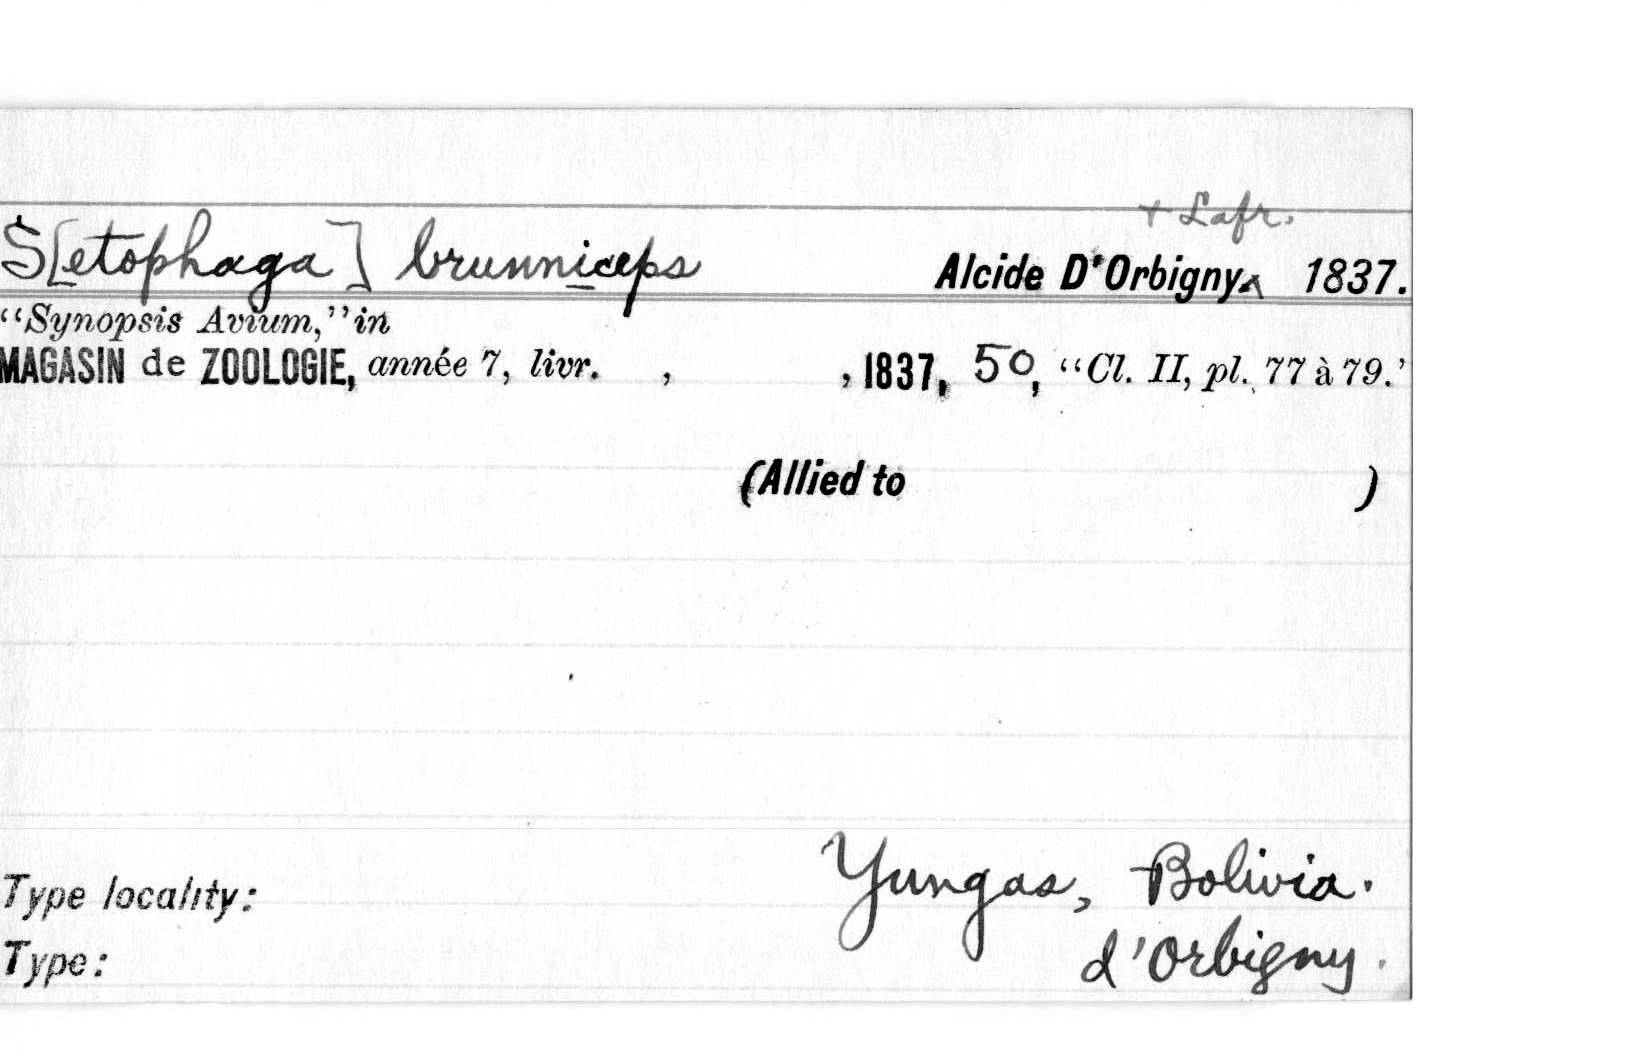 + Lafr.
S[etophaga] brunniceps Alcide D'Orbigny^ 1837.
“Synopsis Avium,” in
MAGASIN de ZOOLOGIE, année 7, livr. , , 1837, 50, “Cl. II, pl. 77 à 79.’
(Allied to )
Type locality: Yungas, Bolivia.
Type: d'Orbigny.